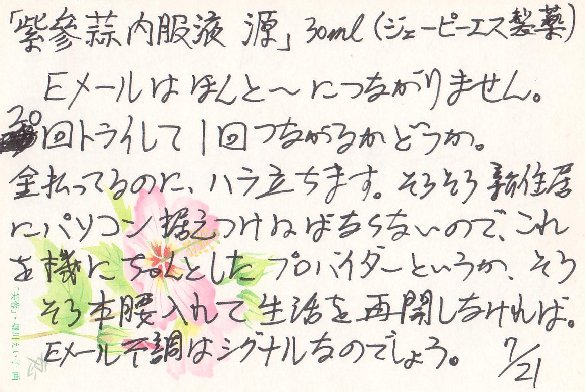 「紫參蒜内服液 源」30ml(ジェーピーエス製薬)
Eメールはほんと〜につながりません。
20回トライして1回つながるかどうか。
金払ってるのに、ハラ立ちます。そろそろ新住居
にパソコン据えつけねばならないので、これ
を機にちゃんとしたプロバイダーというか、そろ
そろ本腰入れて生活を再開しなければ。
Eメール不調はシグナルなのでしょう。7/21